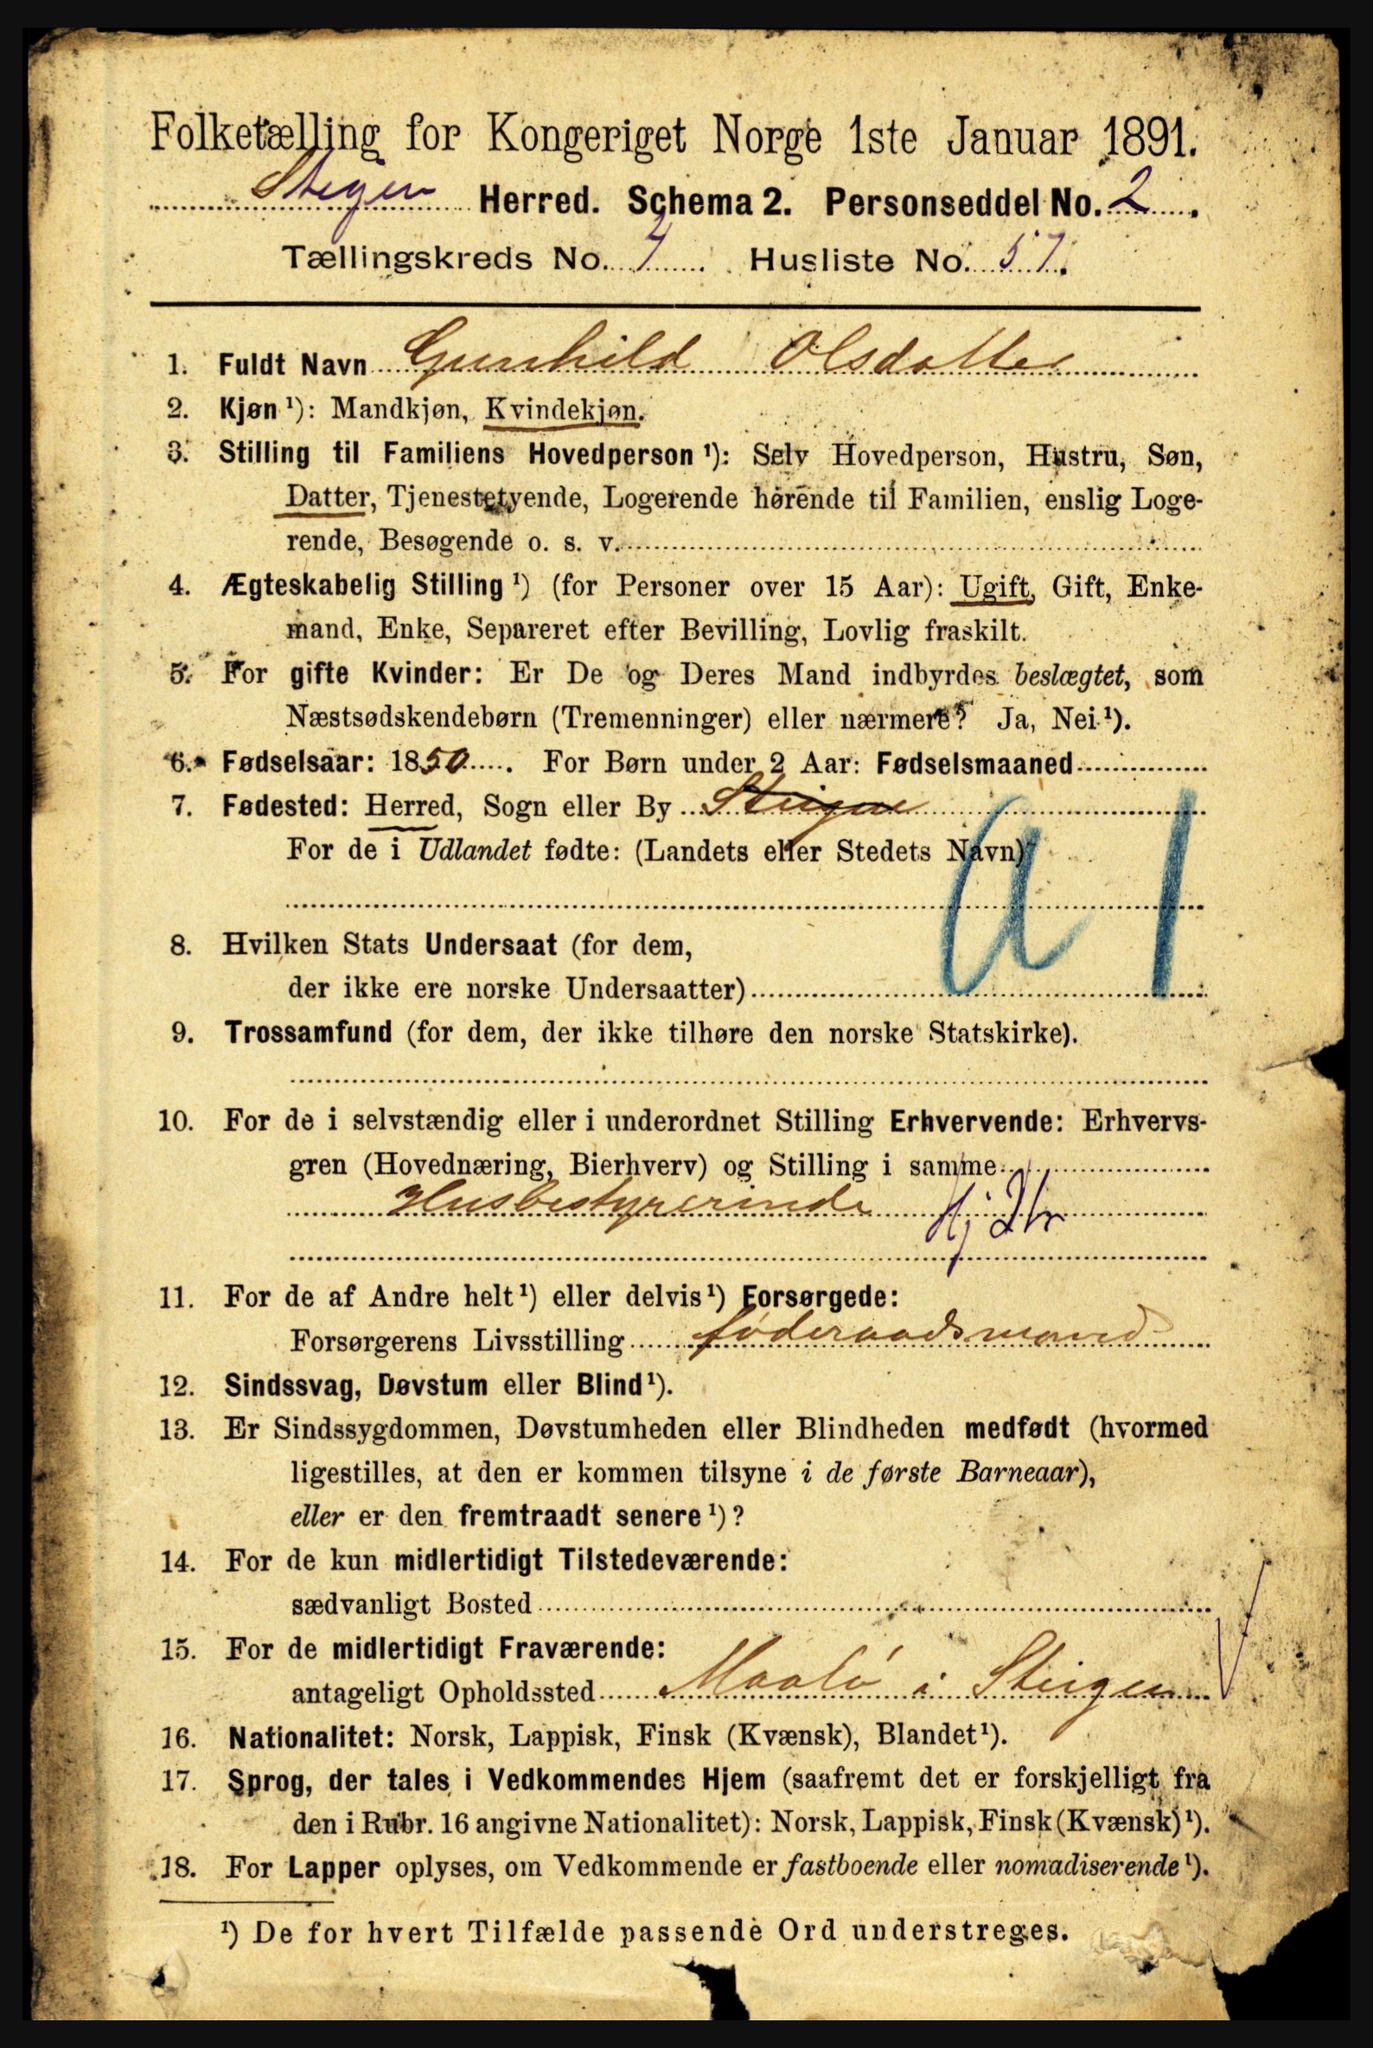 Folketælling for Kongeriget Norge 1ste Januar 1891.
Steigen Herred. Schema 2. Personseddel No. 2.
Tællingskreds No. 7. Husliste No. 57.
1. Fuldt Navn Gunhild Olsdatter
2. Kjøn ¹): Mandkjøn, Kvindekjøn.
3. Stilling til Familiens Hovedperson ¹): Selv Hovedperson, Hustru, Søn,
Datter, Tjenestetyende, Logerende hørende til Familien, enslig Loge-
rende, Besøgende o. s. v.
4. Ægteskabelig Stilling ¹) (for Personer over 15 Aar): Ugift, Gift, Enke-
mand, Enke, Separeret efter Bevilling, Lovlig fraskilt.
5. For gifte Kvinder: Er De og Deres Mand indbyrdes beslægtet, som
Næstsødskendebørn (Tremenninger) eller nærmere? Ja, Nei ¹).
6. Fødselsaar: 1850. For Børn under 2 Aar: Fødselsmaaned
7. Fødested: Herred, Sogn eller By Steigen
For de i Udlandet fødte: (Landets eller Stedets Navn)
a 1
8. Hvilken Stats Undersaat (for dem,
der ikke ere norske Undersaatter)
9. Trossamfund (for dem, der ikke tilhøre den norske Statskirke).
10. For de i selvstændig eller i underordnet Stilling Erhvervende: Erhvervs-
gren (Hovednæring, Bierhverv) og Stilling i samme
Husbestyrerinde
11. For de af Andre helt ¹) eller delvis ¹) Forsørgede:
Forsørgerens Livsstilling føderaadsmand
12. Sindssvag, Døvstum eller Blind ¹).
13. Er Sindssygdommen, Døvstumheden eller Blindheden medfødt (hvormed
ligestilles, at den er kommen tilsyne i de første Barneaar),
eller er den fremtraadt senere ¹)?
14. For de kun midlertidigt Tilstedeværende:
sædvanligt Bosted
15. For de midlertidigt Fraværende:
antageligt Opholdssted Maalø i Steigen
16. Nationalitet: Norsk, Lappisk, Finsk (Kvænsk), Blandet ¹).
17. Sprog, der tales i Vedkommendes Hjem (saafremt det er forskjelligt fra
den i Rubr. 16 angivne Nationalitet): Norsk, Lappisk, Finsk (Kvænsk) ¹).
18. For Lapper oplyses, om Vedkommende er fastboende eller nomadiserende ¹).
¹) De for hvert Tilfælde passende Ord understreges.